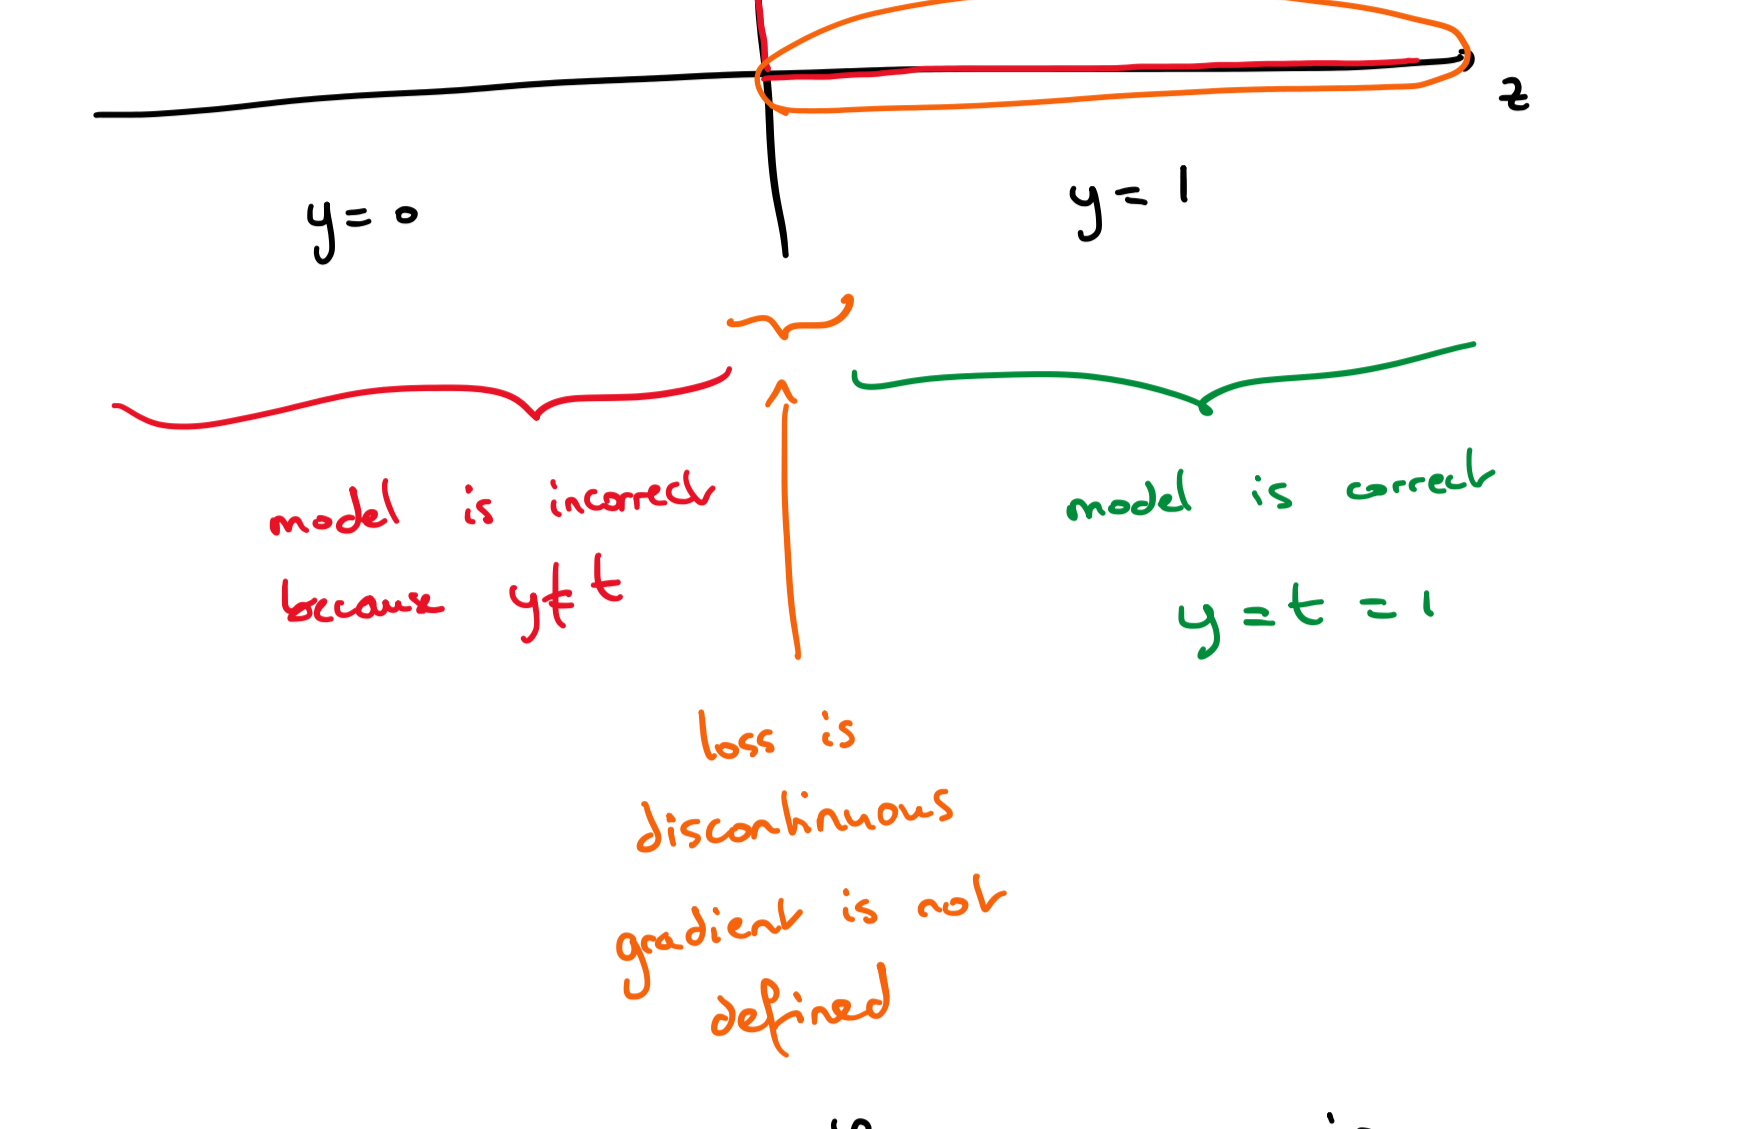 z
y = 0
y = 1
model is incorrect
because y ≠ t
model is correct
y = t = 1
loss is
discontinuous
gradient is not
defined